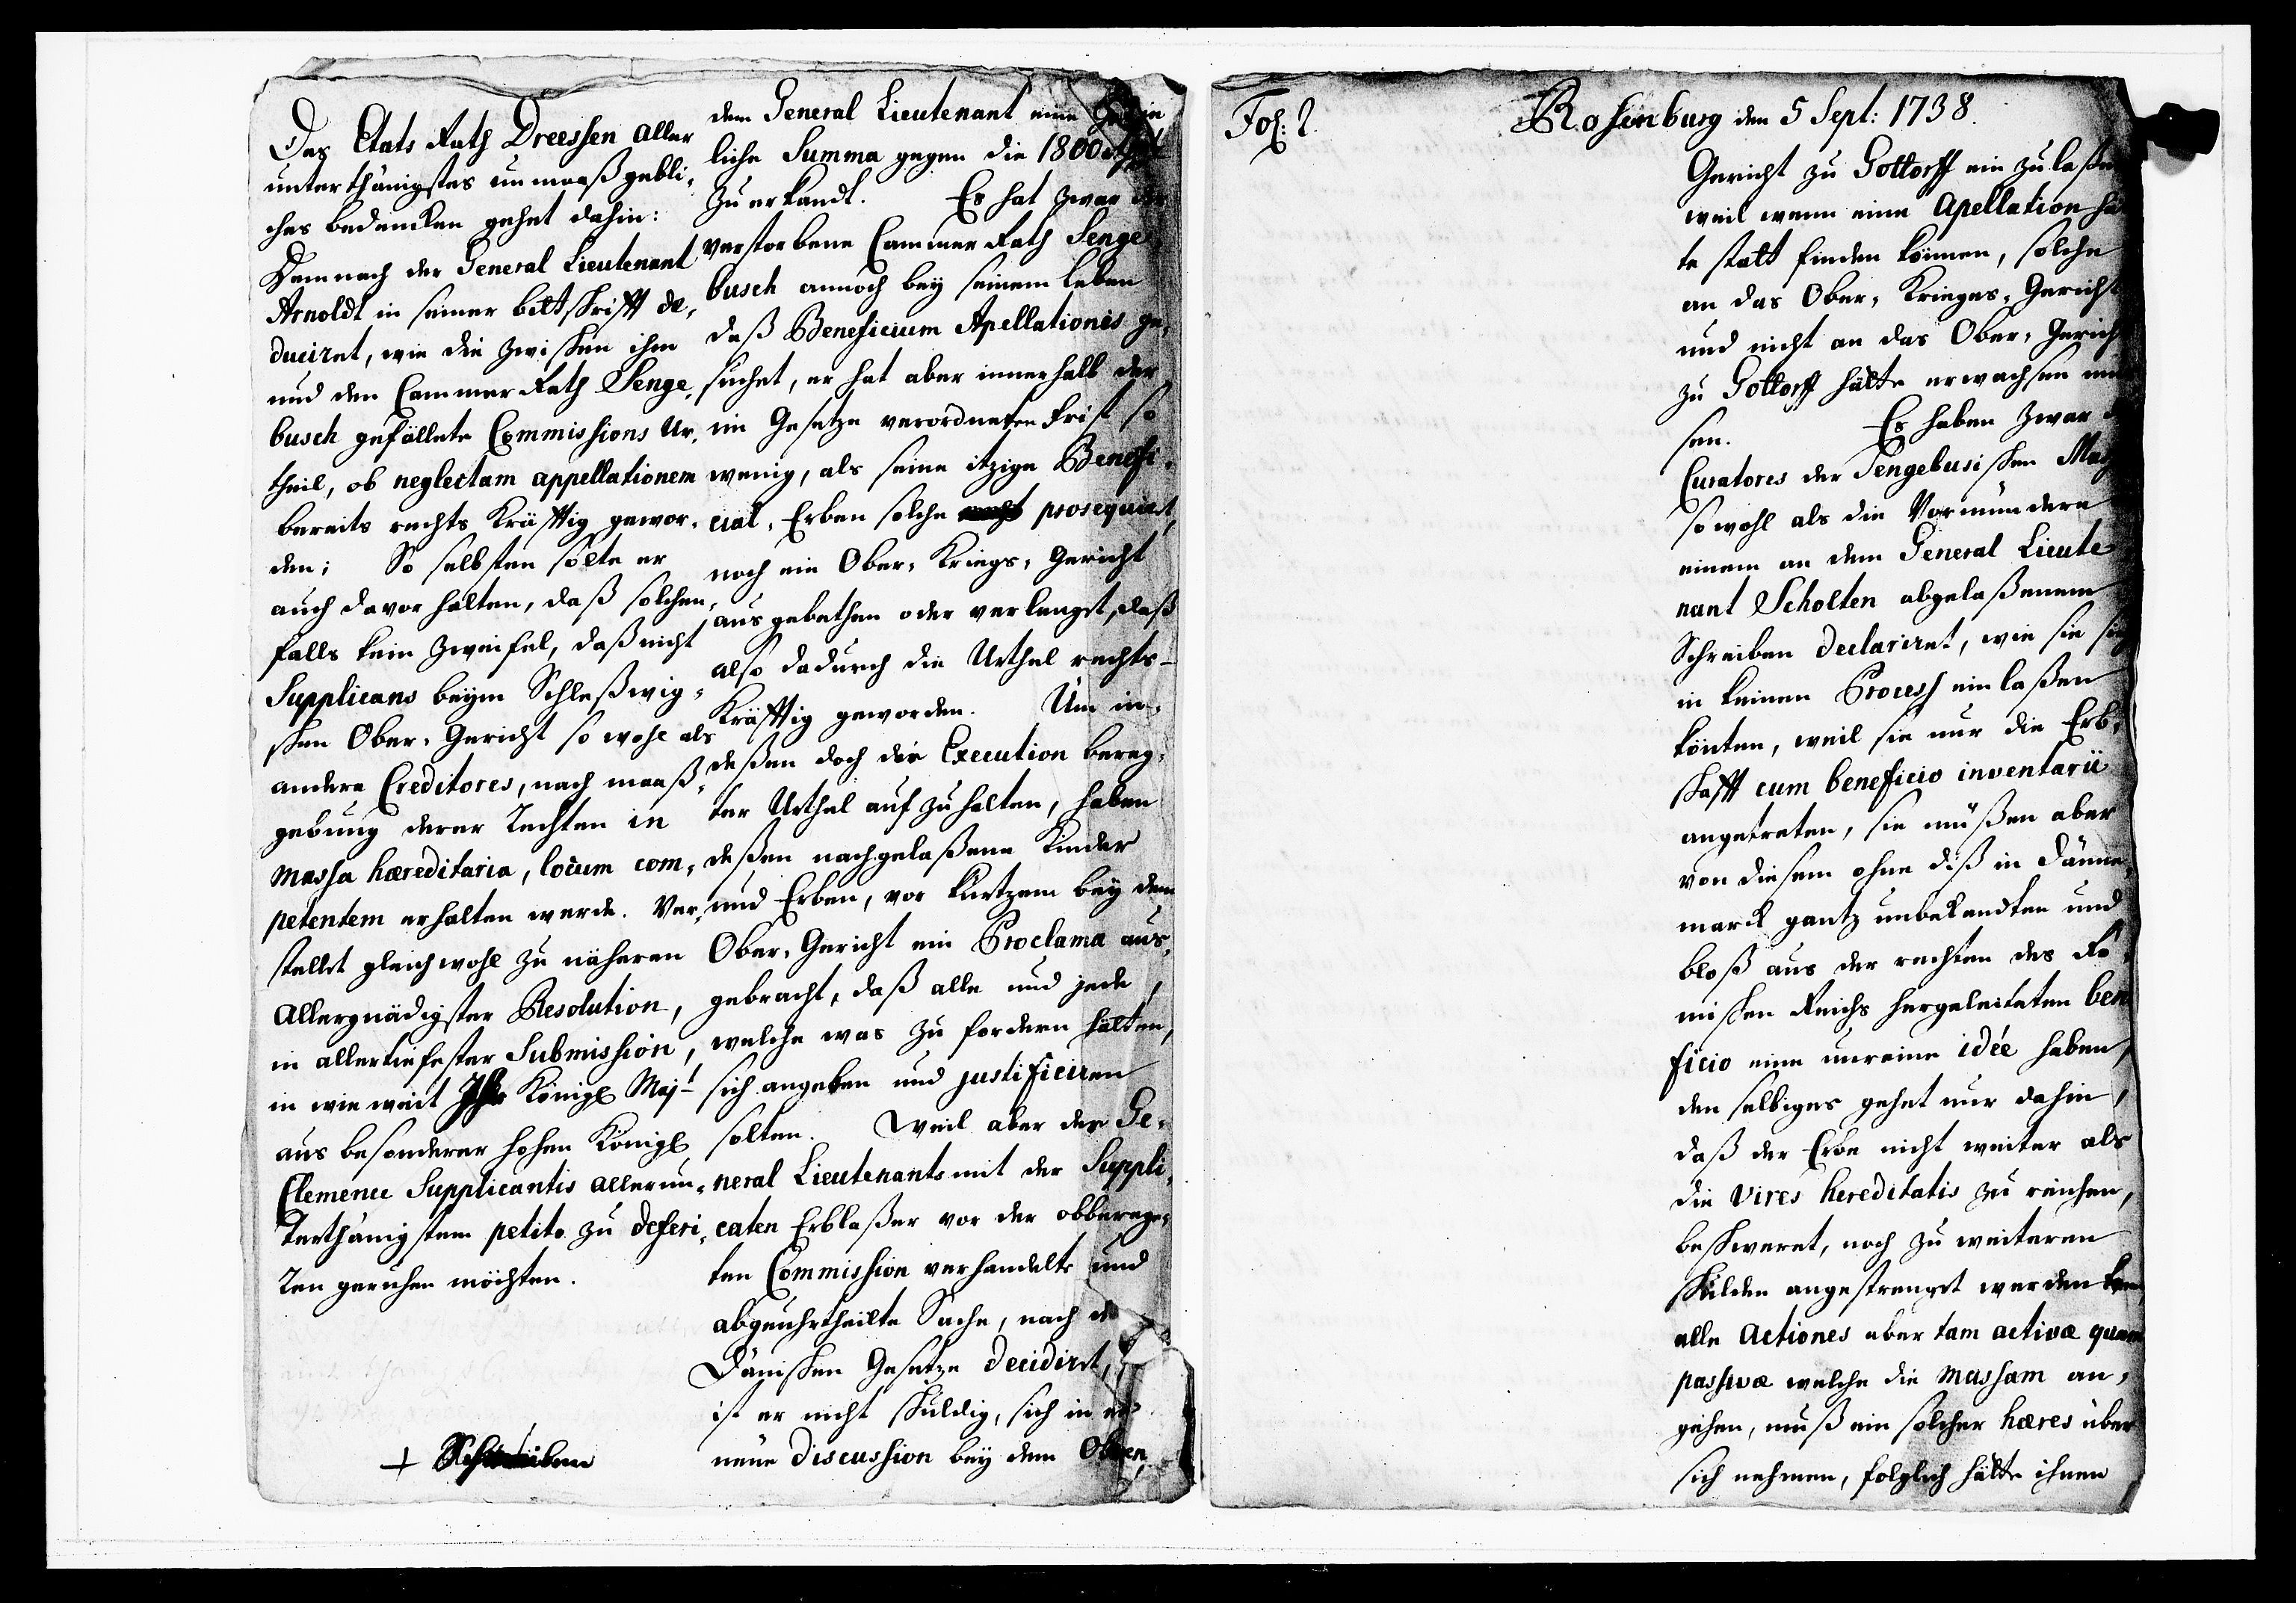 Des Etats Rath Dreessen aller
unterthänigstes unmaaßgebli,
ches bedencken gehet dahin:
Demnach der General Lieutenant
Arnoldt in seiner bittschrifft de,
duciret, wie die zwischen ihm
und den Cammer Rath Senge,
busch gefällete Commissions Ur,
theil, ob neglectam appellationem
bereits rechts kräfftig gewor,
den; So selbsten solte er
auch davor halten, daß solchen,
falls kein Zweifel, daß nicht
Supplicans beym Schleßwig,
schen Ober, Gericht so wohl als
andere Creditores, nach maaß,
gebung derer Rechten in
massa hæreditaria, locum com,
petentem erhalten werde. Ver,
stellet gleichwohl zu näheren
Allergnädigster Resolution,
in allertiefester Submission,
in wie weit Ihr Königl Majt
aus besonderer hohen Königl
Clemence Supplicantis allerun,
terthänigstem petito zu deferi,
ren geruhen möchten.
+ Schreiben
dem General Lieutenant eine
liche Summa gegen die 1800
zuerkandt. Es hat zwar der
verstorbene Cammer Rath Senge,
busch annoch bey seinem leben
daß Beneficium Apellationis ge,
suchet, er hat aber innerhalb der
im Gesetze verordneten Frist so
wenig, als seine itzige Benefi,
cial, Erben solche prosequiret,
noch ein Ober, Kriegs, Gericht
ausgebethen oder verlanget, daß
also dadurch die Urthel rechts-
kräfftig geworden. Um in,
deßen doch die Execution bereg,
ter Urthel aufzuhalten, haben
deßen nachgelaßene Kinder
und Erben, vor kurtzem bey dem
Ober, Gericht ein Proclama aus,
gebracht, daß alle und jede,
welche was zu fordern hätten,
sich angeben und justificiren
solten. Weil aber der Ge,
neral Lieutenants mit der Suppli,
caten Erblaßer vor der obberege,
ten Commission verhandelte und
abgeuhrtheilte Sache, nach de
Dänischen Gesetze decidiret,
ist er nicht schuldig, sich in
neue discussion bey dem Oben,
Fol: 2. Rosenburg den 5 Sept: 1738.
Gericht zu Gottorff ein zulaßen
weil wenn eine Apellation hä
te statt finden können, solche
an das Ober, Krieges, Gericht
und nicht an das Ober, Gerich
zu Gottorff hätte erwachsen mü
sen. Es haben zwar d
Curatores der Sengebusischen Maß
sowohl als die Vormündere
einem an dem General Lieute
nant Scholten abgelaßenem
Schreiben declariret, wie sie sich
in keinen Process einlaßen
könten, weil sie nur die Erb,
schafft cum beneficio inventarii
angetreten, sie müßen aber
von diesem ohne diß in Dänne,
marck gantz unbekandten und
bloß aus der rechten des Rö,
mischen Reichs hergeleiteten ben
ficio eine unreine idée haben,
den selbiges gehet nur dahin,
daß der Erbe nicht weiter als
die vires hereditatis zu reichen,
beschweret, noch zu weiteren
Schulden angestrenget werden kan
alle Actiones aber tam activæ quam
passivæ welche die massam an,
gehen, muß ein solcher hæres über
sich nehmen, folglich hätte ihnen